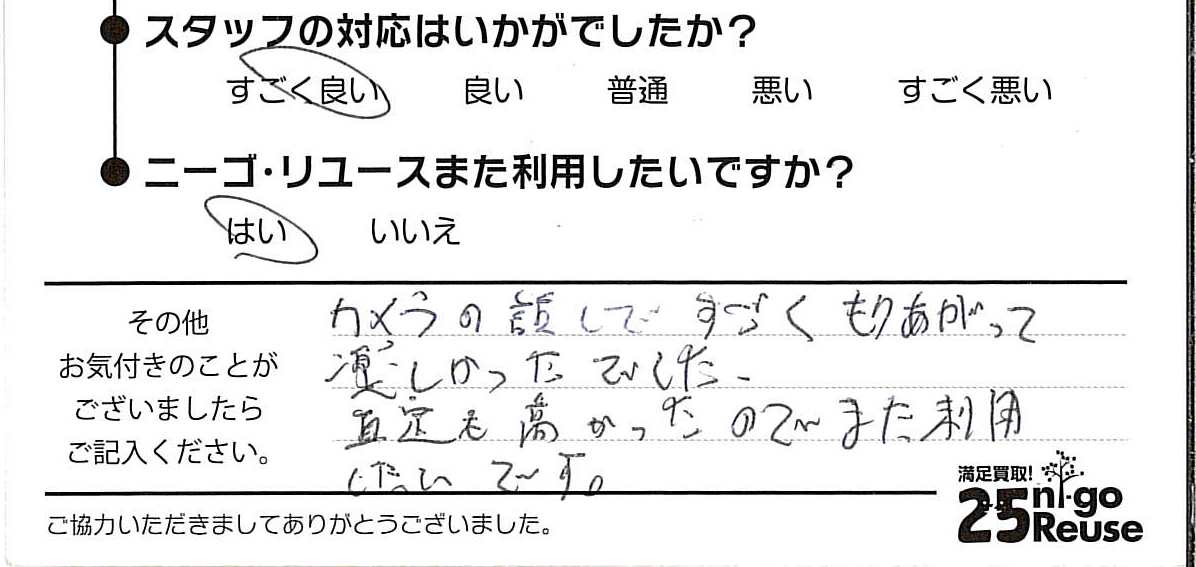 スタッフの対応はいかがでしたか？
すごく良い 良い 普通 悪い すごく悪い
ニーゴ・リユースまた利用したいですか？
はい いいえ
その他
お気付きのことが
ございましたら
ご記入ください。
カメラの話しですごくもりあがって
しかったでした.
査定も高かったのでまた利用
したいです。
ご協力いただきましてありがとうございました。
満足買取!
25 ni-go
Reuse